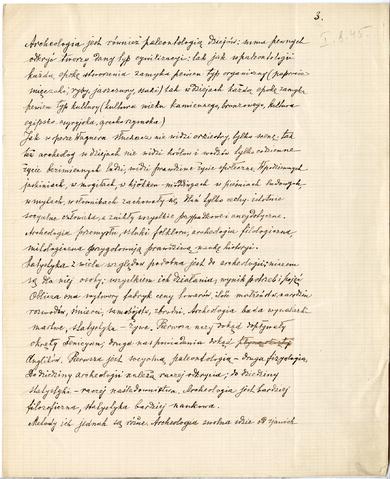 3.
I.8.45.
Archeologia jest również paleontologią dziejów: suma pewnych
odkryć tworzy dany typ cywilizacji: tak jak w paleontologii
każda epoka stworzenia zamyka pewien typ organizmy (paprocie
mięczaki, ryby, jaszczury, ssaki) tak w dziejach każda epoka zamyka
pewien typ kultury (kultura wieku kamiennego, bronzowego, kultura
egipsko-assyryjska, grecko-rzymska)
Jak w operze Wagnera słuchacz nie widzi orkiestry, tylko scenę tak
też archeolog w dziejach nie widzi królów i wodzów tylko codzienne
życie bezimiennych ludzi, widzi prawdziwe życie społeczne. W podziemnych
jaskiniach, w mogiłach, w kjökken-möddingach w pieśniach ludowych,
w mytach, w słownikach zachowały się dlań tylko cechy istotnie
socyalne człowieka, a znikły wszystkie przypadkowe i anegdotyczne.
Archeologia przemysłu, sztuki folklor, archeologia filologiczna,
mitologiczna przygotowują prawdziwą naukę historji.
Statystyka z wielu względów podobna jest do archeologii: nieznane
są dla niej osoby; wszystkiem ich działania; wynik potrzeb i pojęć
Oblicza ona wyroby fabryk ceny towarów, ilość małżeństw, narodzin
rozwodów, śmierci, samobójstw, zbrodni. Archeologia bada wynalazki
martwe, statystyka – żywe. Pierwsza uczy dokąd dopływały
okręty Fenicyan; druga nas powiadamia dokąd
Anglików. Pierwsza jest socyalną paleontologią – druga fizyologią.
Do dziedziny archeologii należą raczej odkrycia; do dziedziny
statystyki – raczej naśladownictwa. Archeologia jest bardziej
filozoficzna, statystyka bardziej naukowa.
Metody ich jednak są różne. Archeologia zwolna idzie od